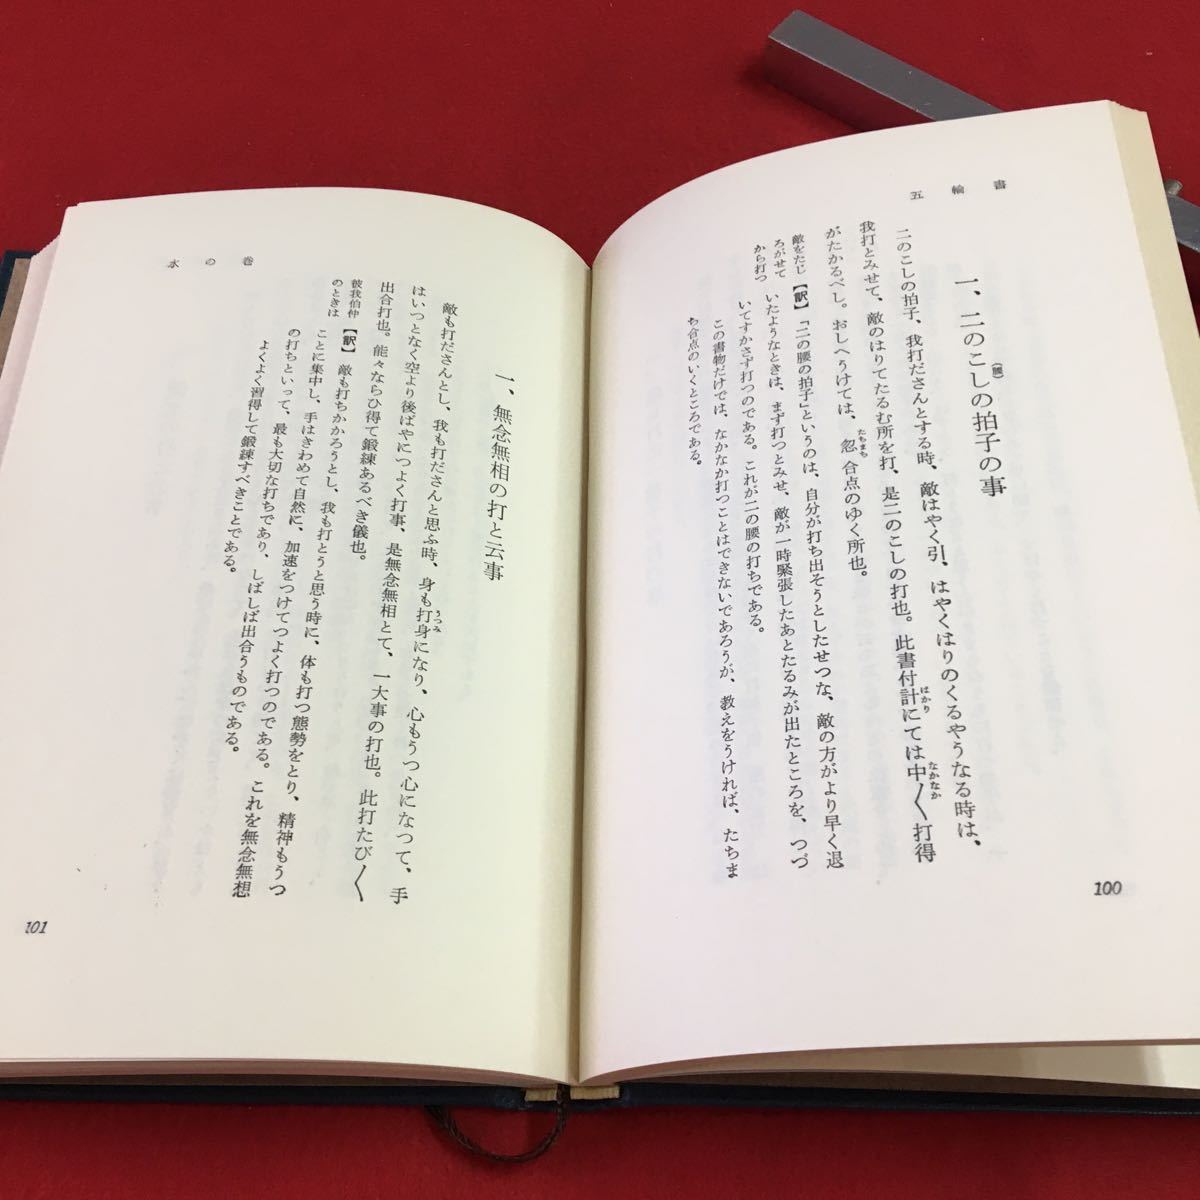 五輪書
一、二のこし(腰)の拍子の事
二のこしの拍子、我打ださんとする時、敵はやく引、はやくはりのくるやうなる時は、
我打とみせて、敵のはりてたるむ所を打、是二のこしの打也。此書付計にては中〱打得
はかり
なかなか
がたかるべし。おしへうけては、忽合点のゆく所也。
たちまち
敵をたじ
ろがせて
から打つ
【訳】「二の腰の拍子」というのは、自分が打ち出そうとしたせつな、敵の方がより早く退
いたようなときは、まず打つとみせ、敵が一時緊張したあとたるみが出たところを、つづ
いてすかさず打つのである。これが二の腰の打ちである。
この書物だけでは、なかなか打つことはできないであろうが、教えをうければ、たちま
ち合点のいくところである。
100
水の巻
一、無念無相の打と云事
敵も打ださんとし、我も打ださんと思ふ時、身も打身になり、心もうつ心になつて、手
うつみ
はいつとなく空より後ばやにつよく打事、是無念無相とて、一大事の打也。此打たび〱
出合打也。能々ならひ得て鍛練あるべき儀也。
彼我伯仲
のときは
【訳】敵も打ちかかろうとし、我も打とうと思う時に、体も打つ態勢をとり、精神もうつ
ことに集中し、手はきわめて自然に、加速をつけてつよく打つのである。これを無念無想
の打ちといって、最も大切な打ちであり、しばしば出合うものである。
よくよく習得して鍛錬すべきことである。
101